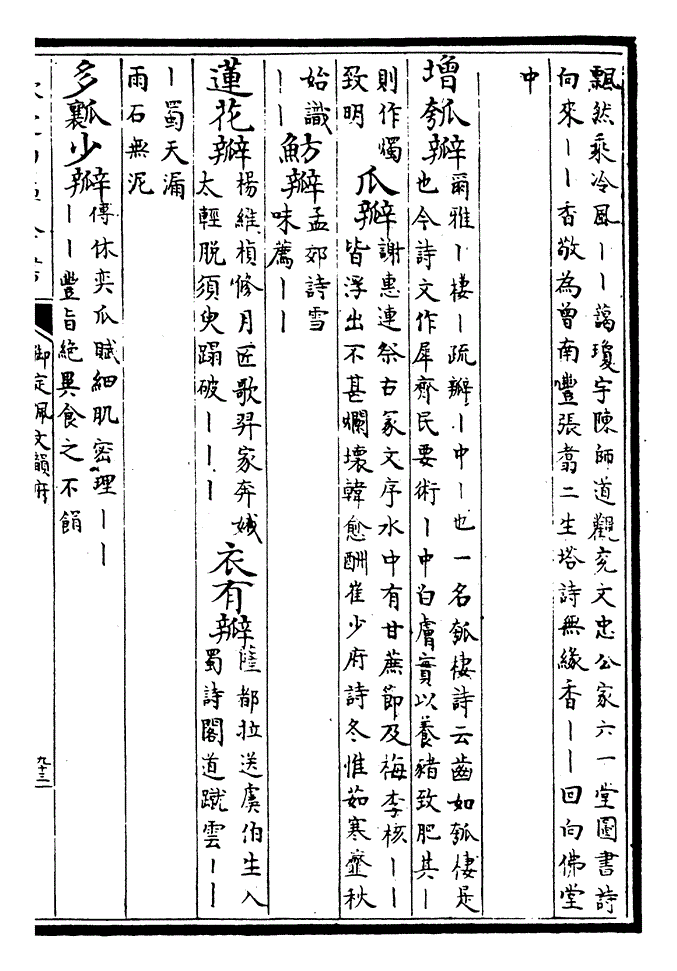 飄然乘冷風丨丨藹瓊宇陳師道觀兖文忠公家六一堂圖書詩
向來丨丨香敬為曾南豐張翥二生塔詩無緣香丨丨回向佛堂
中
增瓠瓣
爾雅丨棲丨疏瓣丨中丨也一名瓠棲詩云齒如瓠棲是
也今詩文作犀齊民要術丨中白膚實以養豬致肥其丨
則作燭
致明
瓜瓣
謝惠連祭古冢文序水中有甘蔗節及梅李核丨丨
皆浮出不甚爛壞韓愈酬崔少府詩冬惟茹寒虀秋
始識
丨丨
魴瓣
孟郊詩雪
味薦丨丨
蓮花瓣
楊維楨修月匠歌羿家奔娥
太輕脱須臾蹋破丨丨丨
衣有瓣
薩都拉送虞伯生入
蜀詩閣道蹴雲丨丨
丨蜀天漏
雨石無泥
多瓤少瓣
傅休奕瓜賦細肌密理丨丨
丨丨豐旨絶異食之不餶
御定佩文韻府
九十三